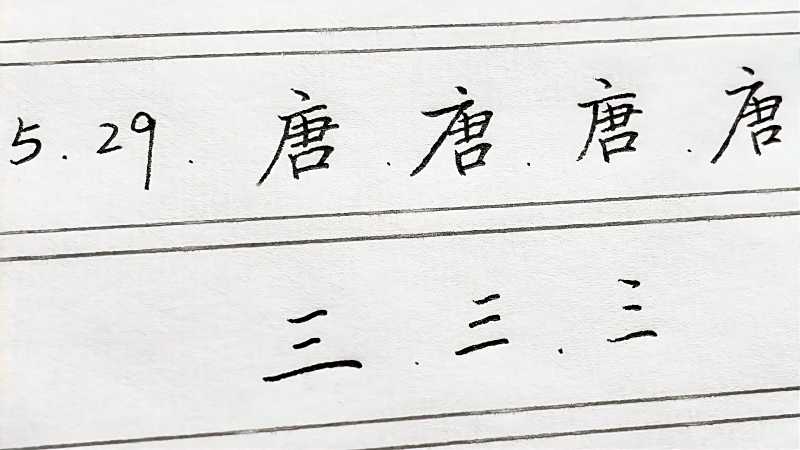 5.29. 唐.唐.唐.唐
三.三.三